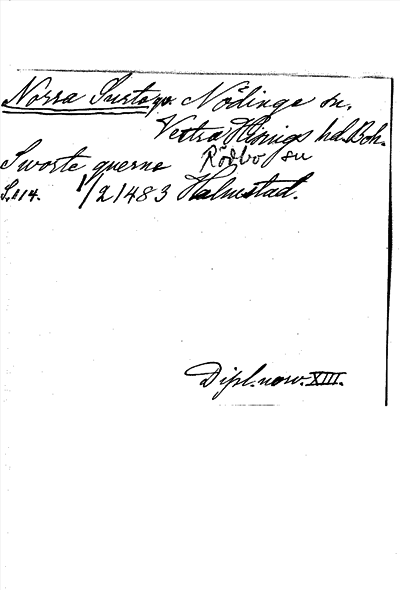 Norra Surte ya. Nödinge sn.
Vestra Hisings hd. Boh.
Rödbo sn
Sworte querne
S. 114. 1/2 1483 Halmstad.
Dipl. norv. XIII.